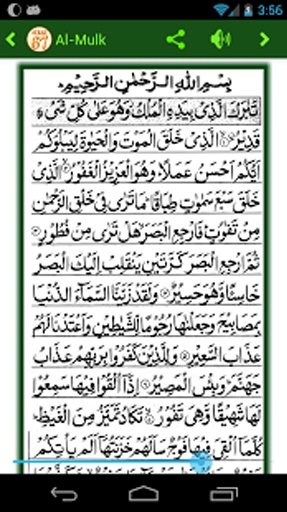 3:56
Al-Mulk
بِسْمِ اللهِ الرَّحْمٰنِ الرَّحِيْمِ
تَبٰرَكَ الَّذِيْ بِيَدِهِ الْمُلْكُ وَهُوَ عَلٰى كُلِّ شَيْءٍ
قَدِيْرُ ۙ الَّذِيْ خَلَقَ الْمَوْتَ وَالْحَيٰوةَ لِيَبْلُوَكُمْ
اَيُّكُمْ اَحْسَنُ عَمَلًا ؕ وَهُوَ الْعَزِيْزُ الْغَفُوْرُ ۙ الَّذِيْ
خَلَقَ سَبْعَ سَمٰوٰتٍ طِبَاقًا ؕ مَا تَرٰى فِيْ خَلْقِ الرَّحْمٰنِ
مِنْ تَفٰوُتٍ ؕ فَارْجِعِ الْبَصَرَ هَلْ تَرٰى مِنْ فُطُوْرٍ
ثُمَّ ارْجِعِ الْبَصَرَ كَرَّتَيْنِ يَنْقَلِبْ اِلَيْكَ الْبَصَرُ
خَاسِئًا وَّهُوَ حَسِيْرٌ وَلَقَدْ زَيَّنَّا السَّمَآءَ الدُّنْيَا
بِمَصَابِيْحَ وَجَعَلْنٰهَا رُجُوْمًا لِّلشَّيٰطِيْنِ وَاَعْتَدْنَا لَهُمْ
عَذَابَ السَّعِيْرِ وَلِلَّذِيْنَ كَفَرُوْا بِرَبِّهِمْ عَذَابُ
جَهَنَّمَ ؕ وَبِئْسَ الْمَصِيْرُ اِذَآ اُلْقُوْا فِيْهَا سَمِعُوْا
لَهَا شَهِيْقًا وَّهِيَ تَفُوْرُ ۙ تَكَادُ تَمَيَّزُ مِنَ الْغَيْظِ ؕ
كُلَّمَآ اُلْقِيَ فِيْهَا فَوْجٌ سَاَلَهُمْ خَزَنَتُهَآ اَلَمْ يَاْتِكُمْ